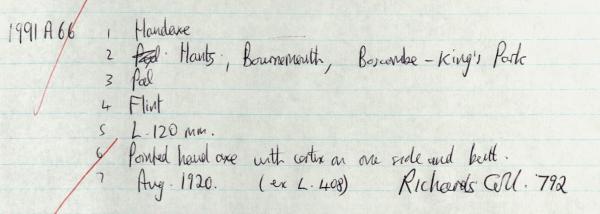 1991 A 66 1 Handaxe
2 Hants., Bournemouth, Boscombe - King's Park
3 Pal
4 Flint
5 L. 120 mm.
6 Pointed hand axe with cortex on one side and butt.
7 Aug. 1920. (ex L. 408) Richards Coll. 792